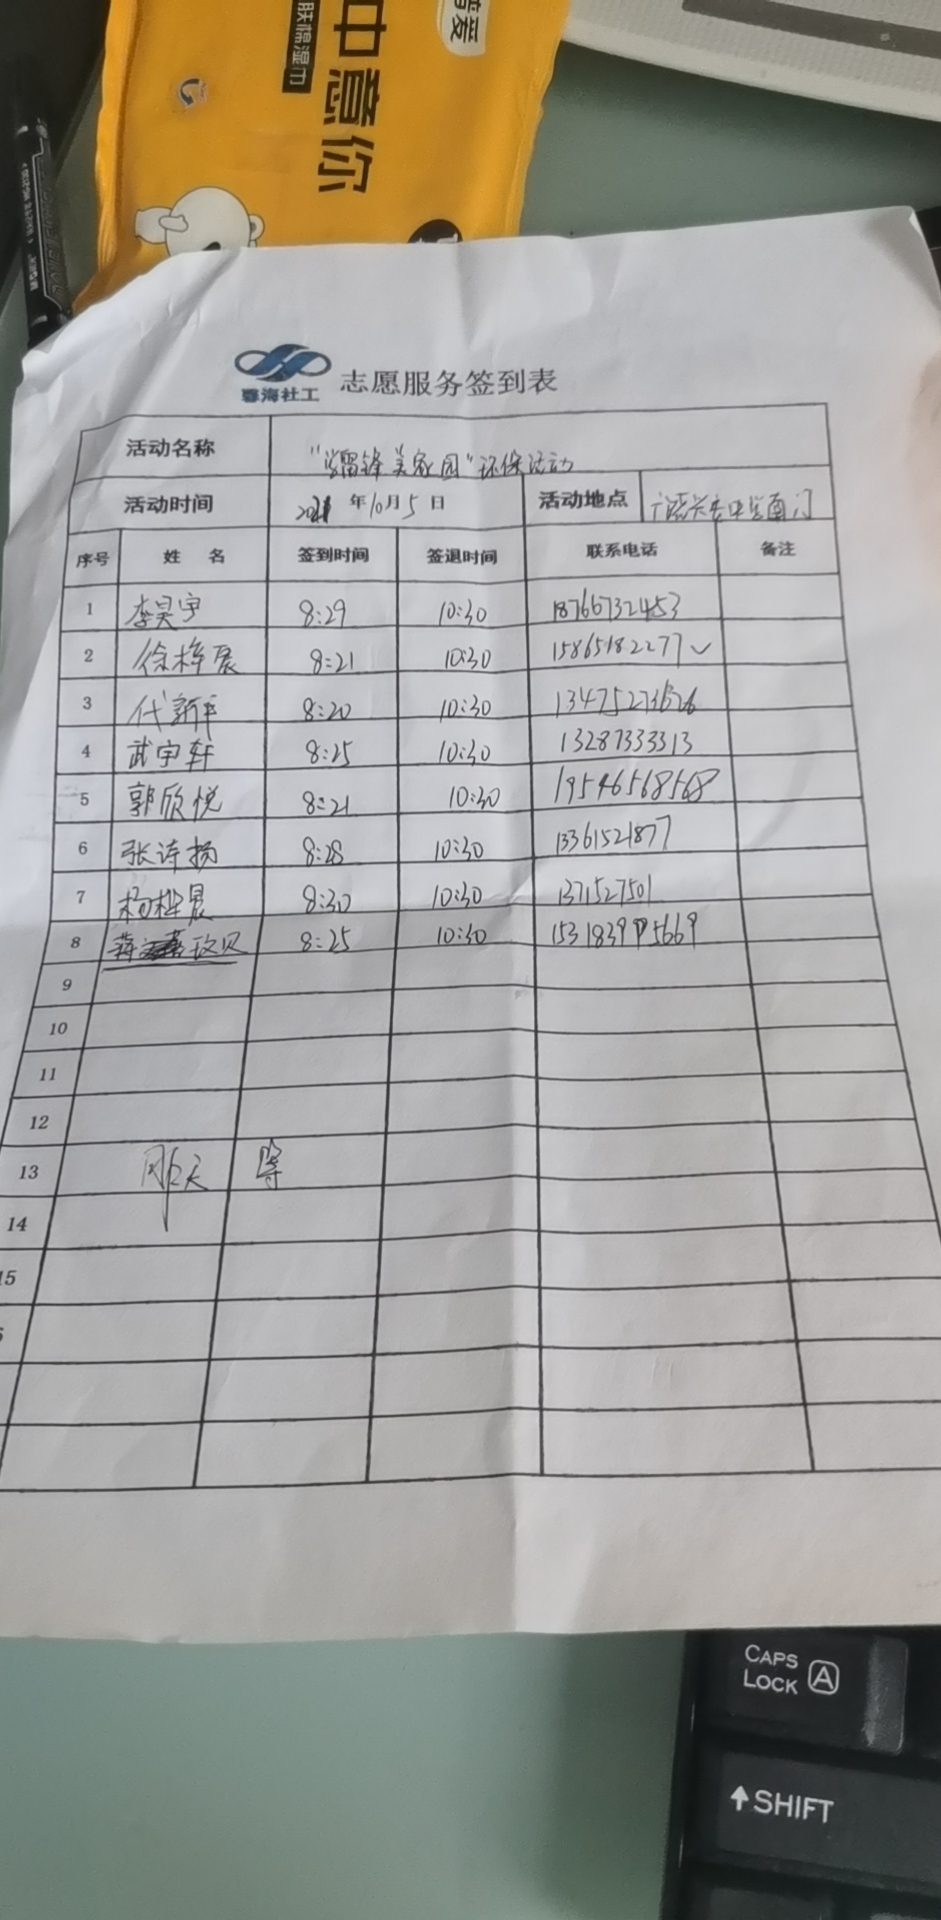 中意你
肤棉湿巾
馨海社工 志愿服务签到表
活动名称 "学雷锋 美家园"环保活动
活动时间 年10月5日 活动地点
序号 姓 名 签到时间 签退时间 联系电话 备注
1 李昊宇 8:29 10:30 18766732453
2 徐梓晨 8:21 10:30 15865182277 ✓
3 代新平 8:20 10:30
4 武宇轩 8:25 10:30 13287333313
5 郭欣悦 8:21 10:30 19546568568
6 张诗扬 8:28 10:30 13361521877
7 杨梓晨 8:30 10:30 1371527501
8 蒋 玟贝 8:25 10:30
9
10
11
12
13
14
15
CAPS
LOCK A
SHIFT